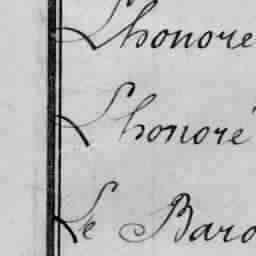 L'honoré
L'honoré
Le Baro